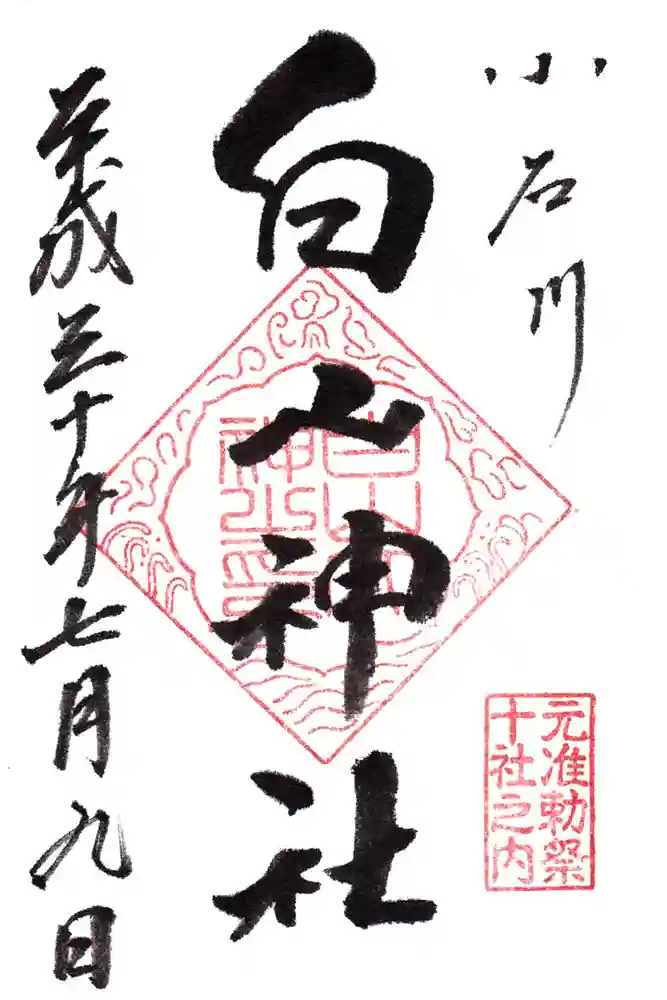 小石川
白山神社
平成三十年七月九日
元准勅祭
十社之内